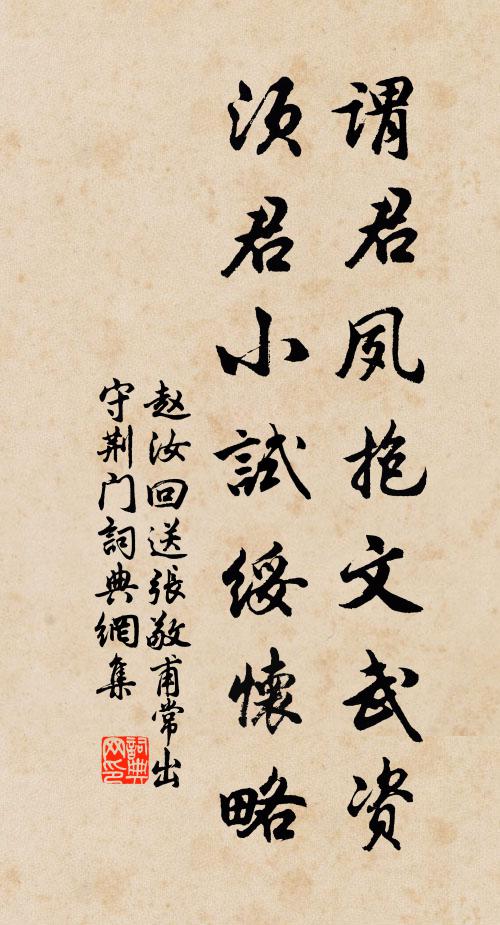 謂君夙抱文武资
须君小試綏懷略
赵汝回送張敬甫常出
守荆门詞典網集
詞典网印